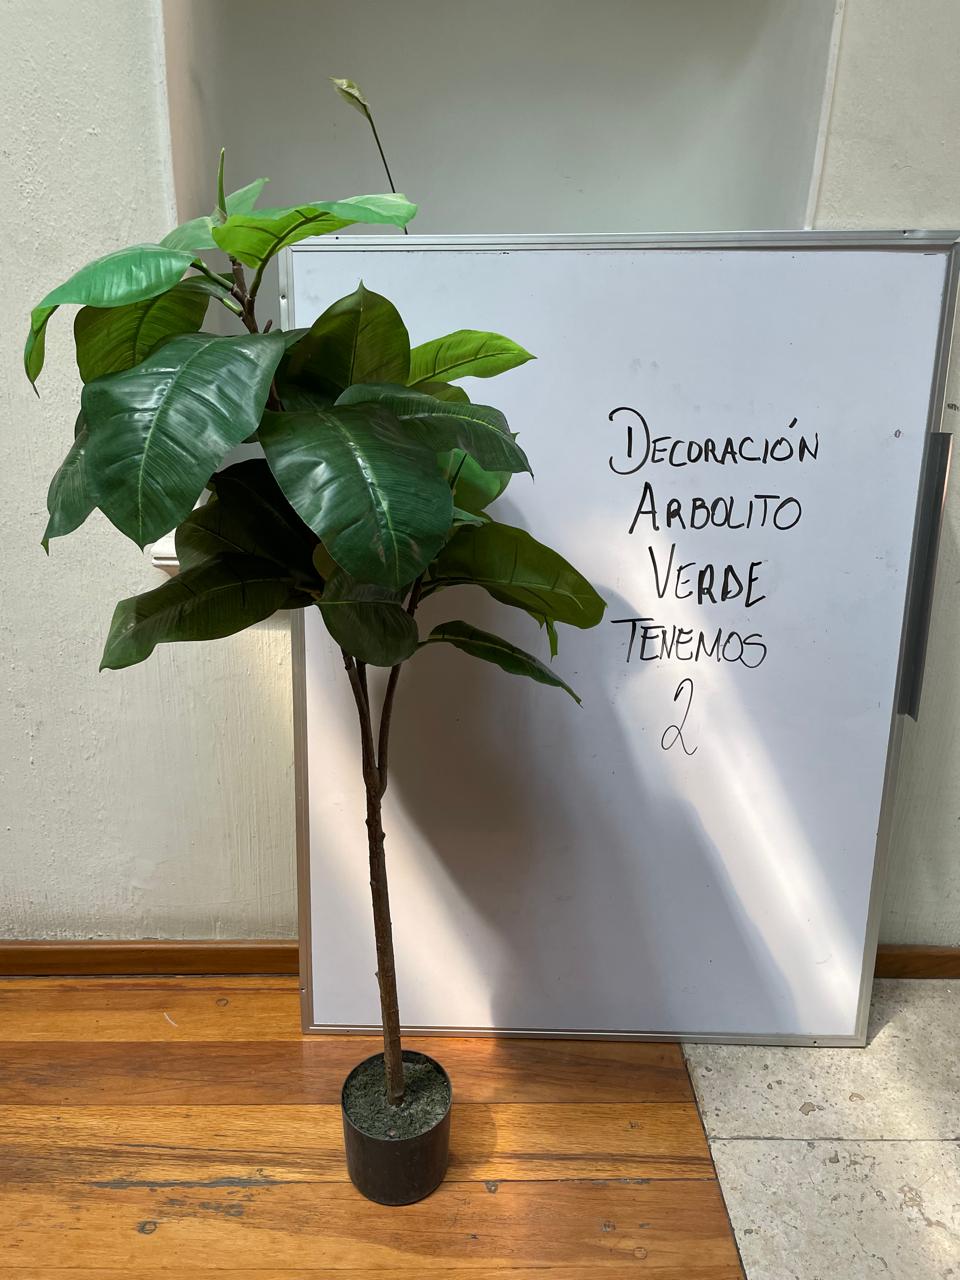 DECORACIÓN
ARBOLITO
VERDE
TENEMOS
2